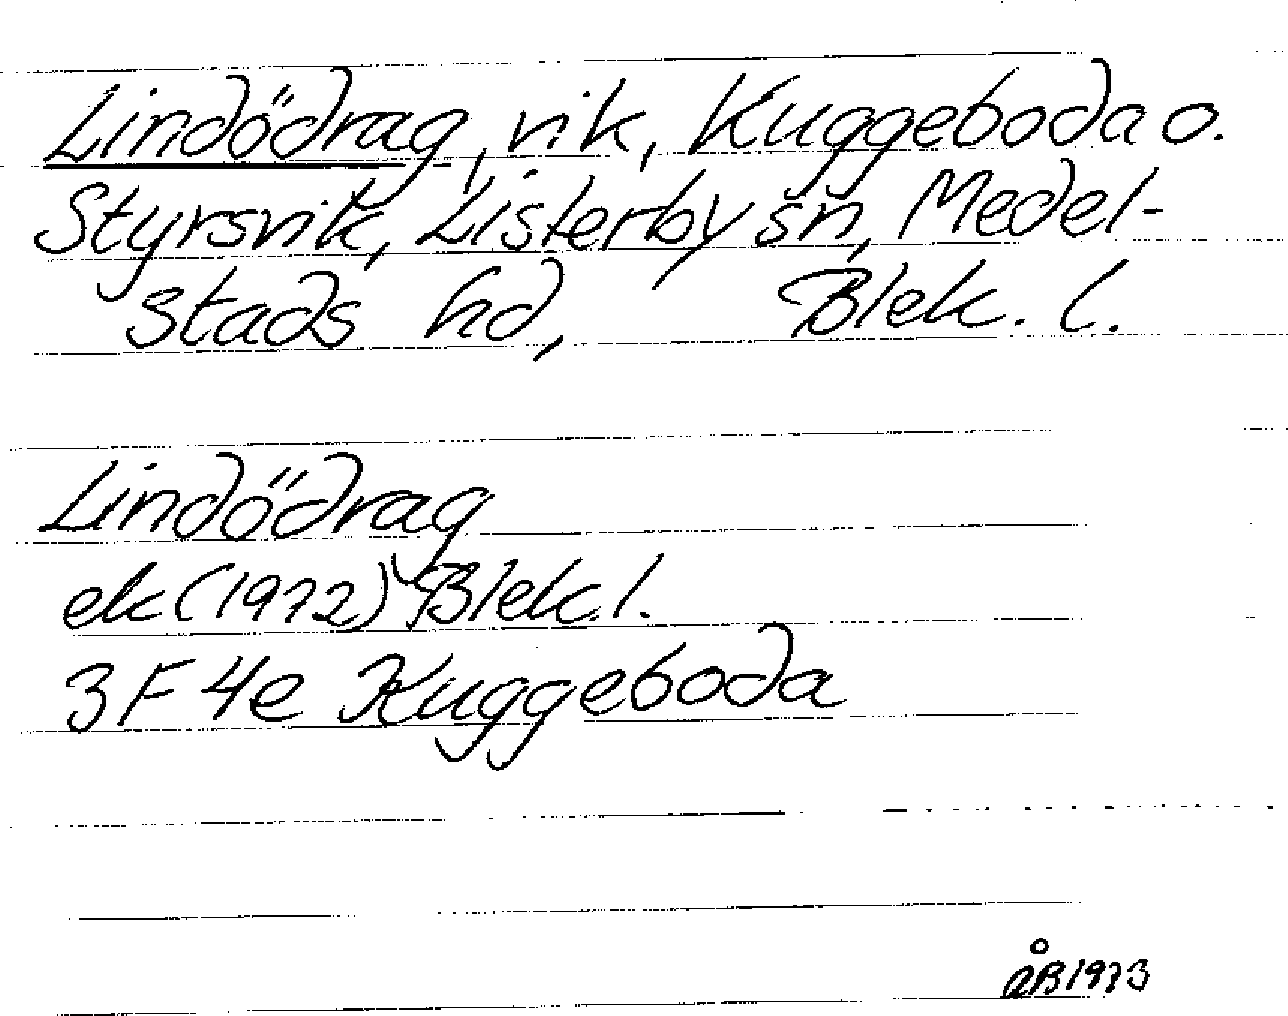 Lindödrag, vik, Kuggeboda o.
Styrsvik, Listerby sn, Medel-
stads hd, Blek. l.
Lindödrag
ek (1972) Blek. l.
3F 4e Kuggeboda
ÅB 1973